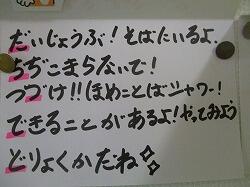 だいじょうぶ！そばにいるよ
ちぢこまらないで！
つづけ!!ほめことばシャワー！
できることがあるよ！やってみよう
どりょくかたね